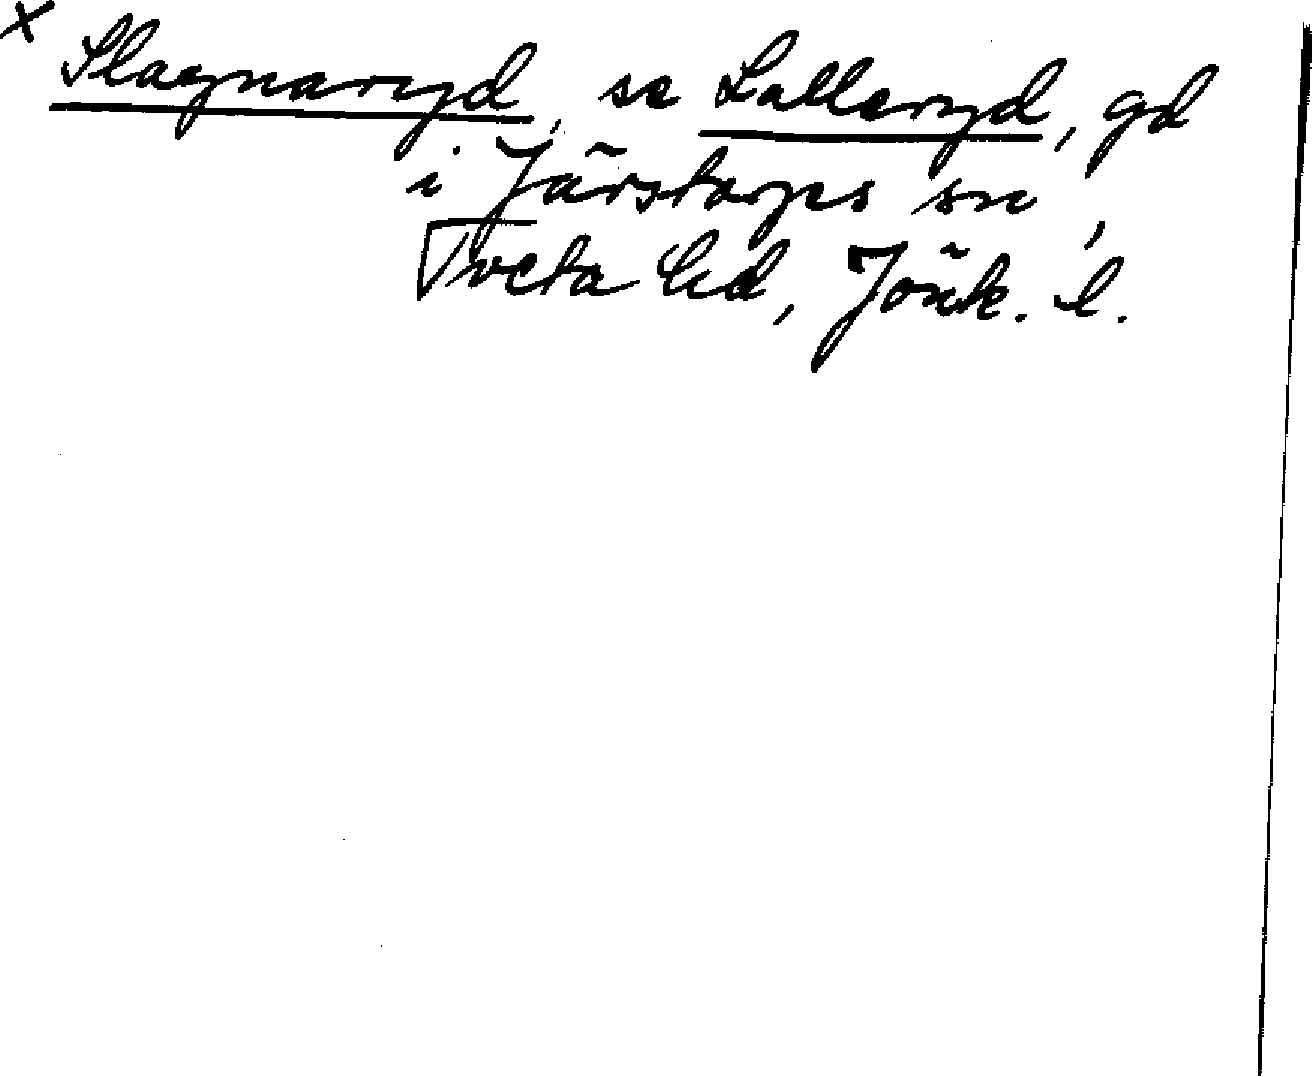 x Slagnaryd, se Lalleryd, gd
i Järstorps sn,
Tveta hd, Jönk. l.